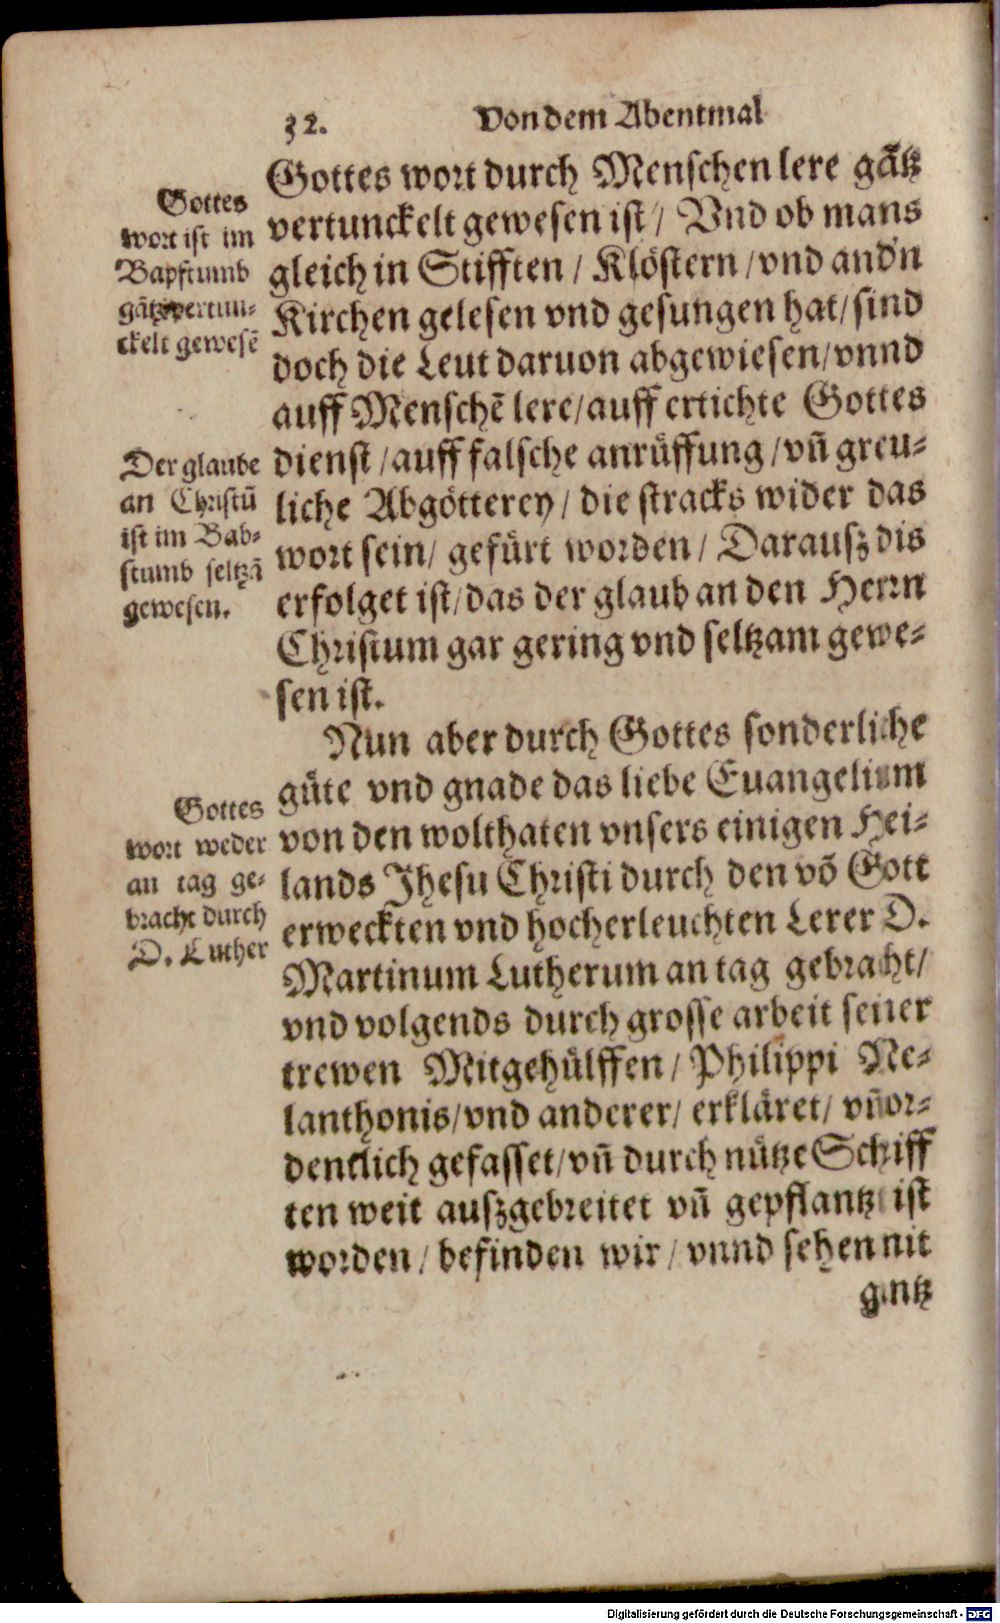 32. Von dem Abentmal
Gottes wort durch Menschen lere gãtz
vertunckelt gewesen ist / Vnd ob mans
gleich in Stifften / Klöstern / vnd and'n
Kirchen gelesen vnd gesungen hat / sind
doch die Leut daruon abgewiesen / vnnd
auff Menschẽ lere / auff ertichte Gottes
dienst / auff falsche anrüffung / vñ greu-
liche Abgötterey / die stracks wider das
wort sein / gefürt worden / Darausz dis
erfolget ist / das der glaub an den Herrn
Christum gar gering vnd seltzam gewe-
sen ist.
Nun aber durch Gottes sonderliche
güte vnd gnade das liebe Euangelium
von den wolthaten vnsers einigen Hei-
lands Jhesu Christi durch den võ Gott
erweckten vnd hocherleuchten Lerer D.
Martinum Lutherum an tag gebracht /
vnd volgends durch grosse arbeit seiner
trewen Mitgehülffen / Philippi Me-
lanthonis / vnd anderer / erkläret / vñ or-
dentlich gefasset / vñ durch nütze Schiff
ten weit auszgebreitet vñ gepflantzt ist
worden / befinden wir / vnnd sehen nit
gantz
Gottes
wort ist im
Bapstumb
gãtz vertun-
ckelt gewesẽ
Der glaube
an Christũ
ist im Bab-
stumb seltzã
gewesen.
Gottes
wort weder
an tag ge-
bracht durch
D. Luther
Digitalisierung gefördert durch die Deutsche Forschungsgemeinschaft - DFG